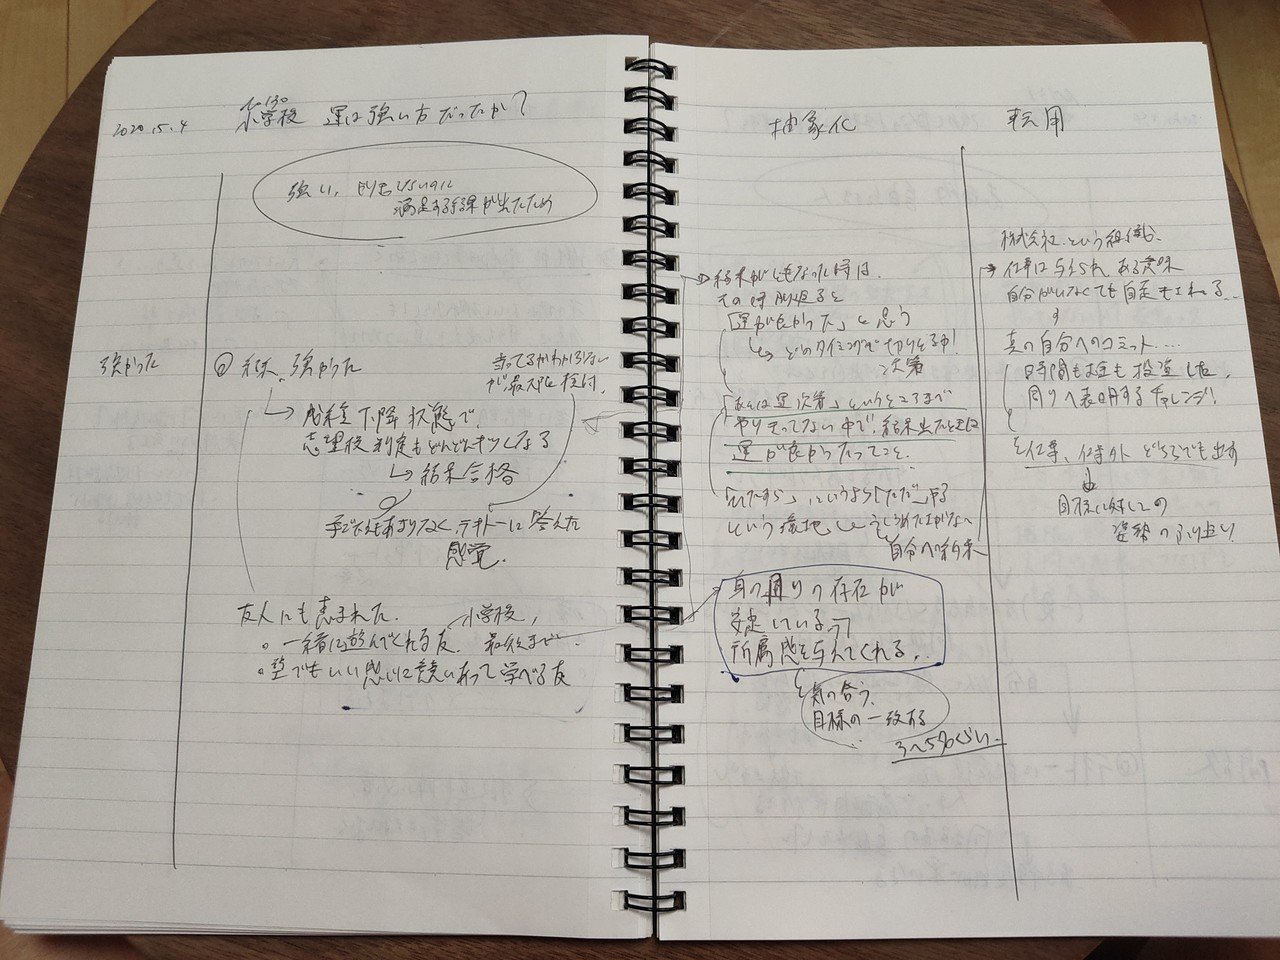 2020.5.4
小学校 運は強い方だったか?
強い。
満足する結果が出たため
強かった
結果、強かった
当ってるかわからない
が最大限
成績下降状態で
志望校判定もどんどん
結果合格
手ごたえもあまりなく、テキトーに答えた
感覚。
友人にも恵まれた。
小学校、
・一緒に遊んでくれる友、最後まで
・塾でもいい感じに競いあって学べる友
抽象化
転用
結果がともなった時は、
その時振返ると
「運が良かった」と思う
どのタイミングで切りとるか!
次第
「あとは運次第」というところまで
やりきってない中で、結果出たときは
運が良かったってこと。
「ひたすら」というより「ただ」やる
という
自分への約束
身の周りの存在が
安定している
所属感を与えてくれる。
気の合う、
目標の一致する
3〜5%ぐらい。
株式会社という組織も、
仕事は与えられ、ある意味
自分がいなくても自走もされる...
真の自分へのコミット....
時間もお金も投資した。
周りへ表明するチャレンジ!
仕事、仕事外 どちらでも出す
目標に対しての
姿勢のふり返り